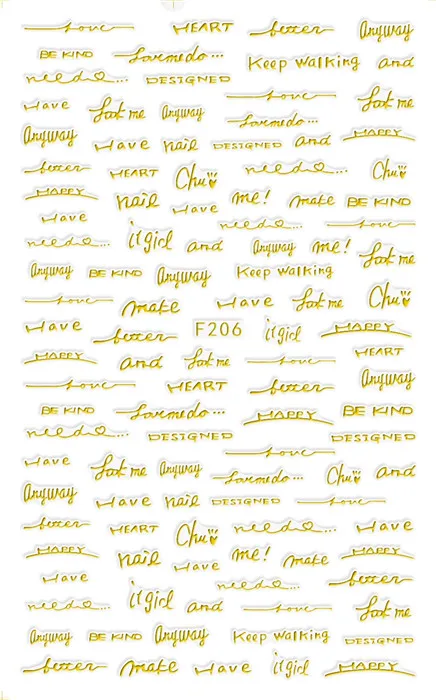 Love HEART better Anyway
BE KIND Keep walking and
need... DESIGNED
Love
Have Look me Anyway Look me
Anyway Have nail DESIGNED and HAPPY
better HEART Chu need... Chu
HAPPY nail Have me! make BE KIND
Have need... Love
need... itgirl and Anyway me! Look me
Anyway BE KIND Anyway Keep walking
Love make Have Look me Chu
Have better F206 itgirl HAPPY
HAPPY and Look me Love HEART
Love HEART better Anyway
BE KIND HAPPY BE KIND
need... DESIGNED DESIGNED
Love
Have Look me Anyway Chu and
Anyway Have nail DESIGNED Love
better HEART Chu need... Have
HAPPY nail Have me! make HAPPY
Have need... better
need... itgirl and Love Look me
Anyway BE KIND Anyway Keep walking DESIGNED
better make Have itgirl HAPPY